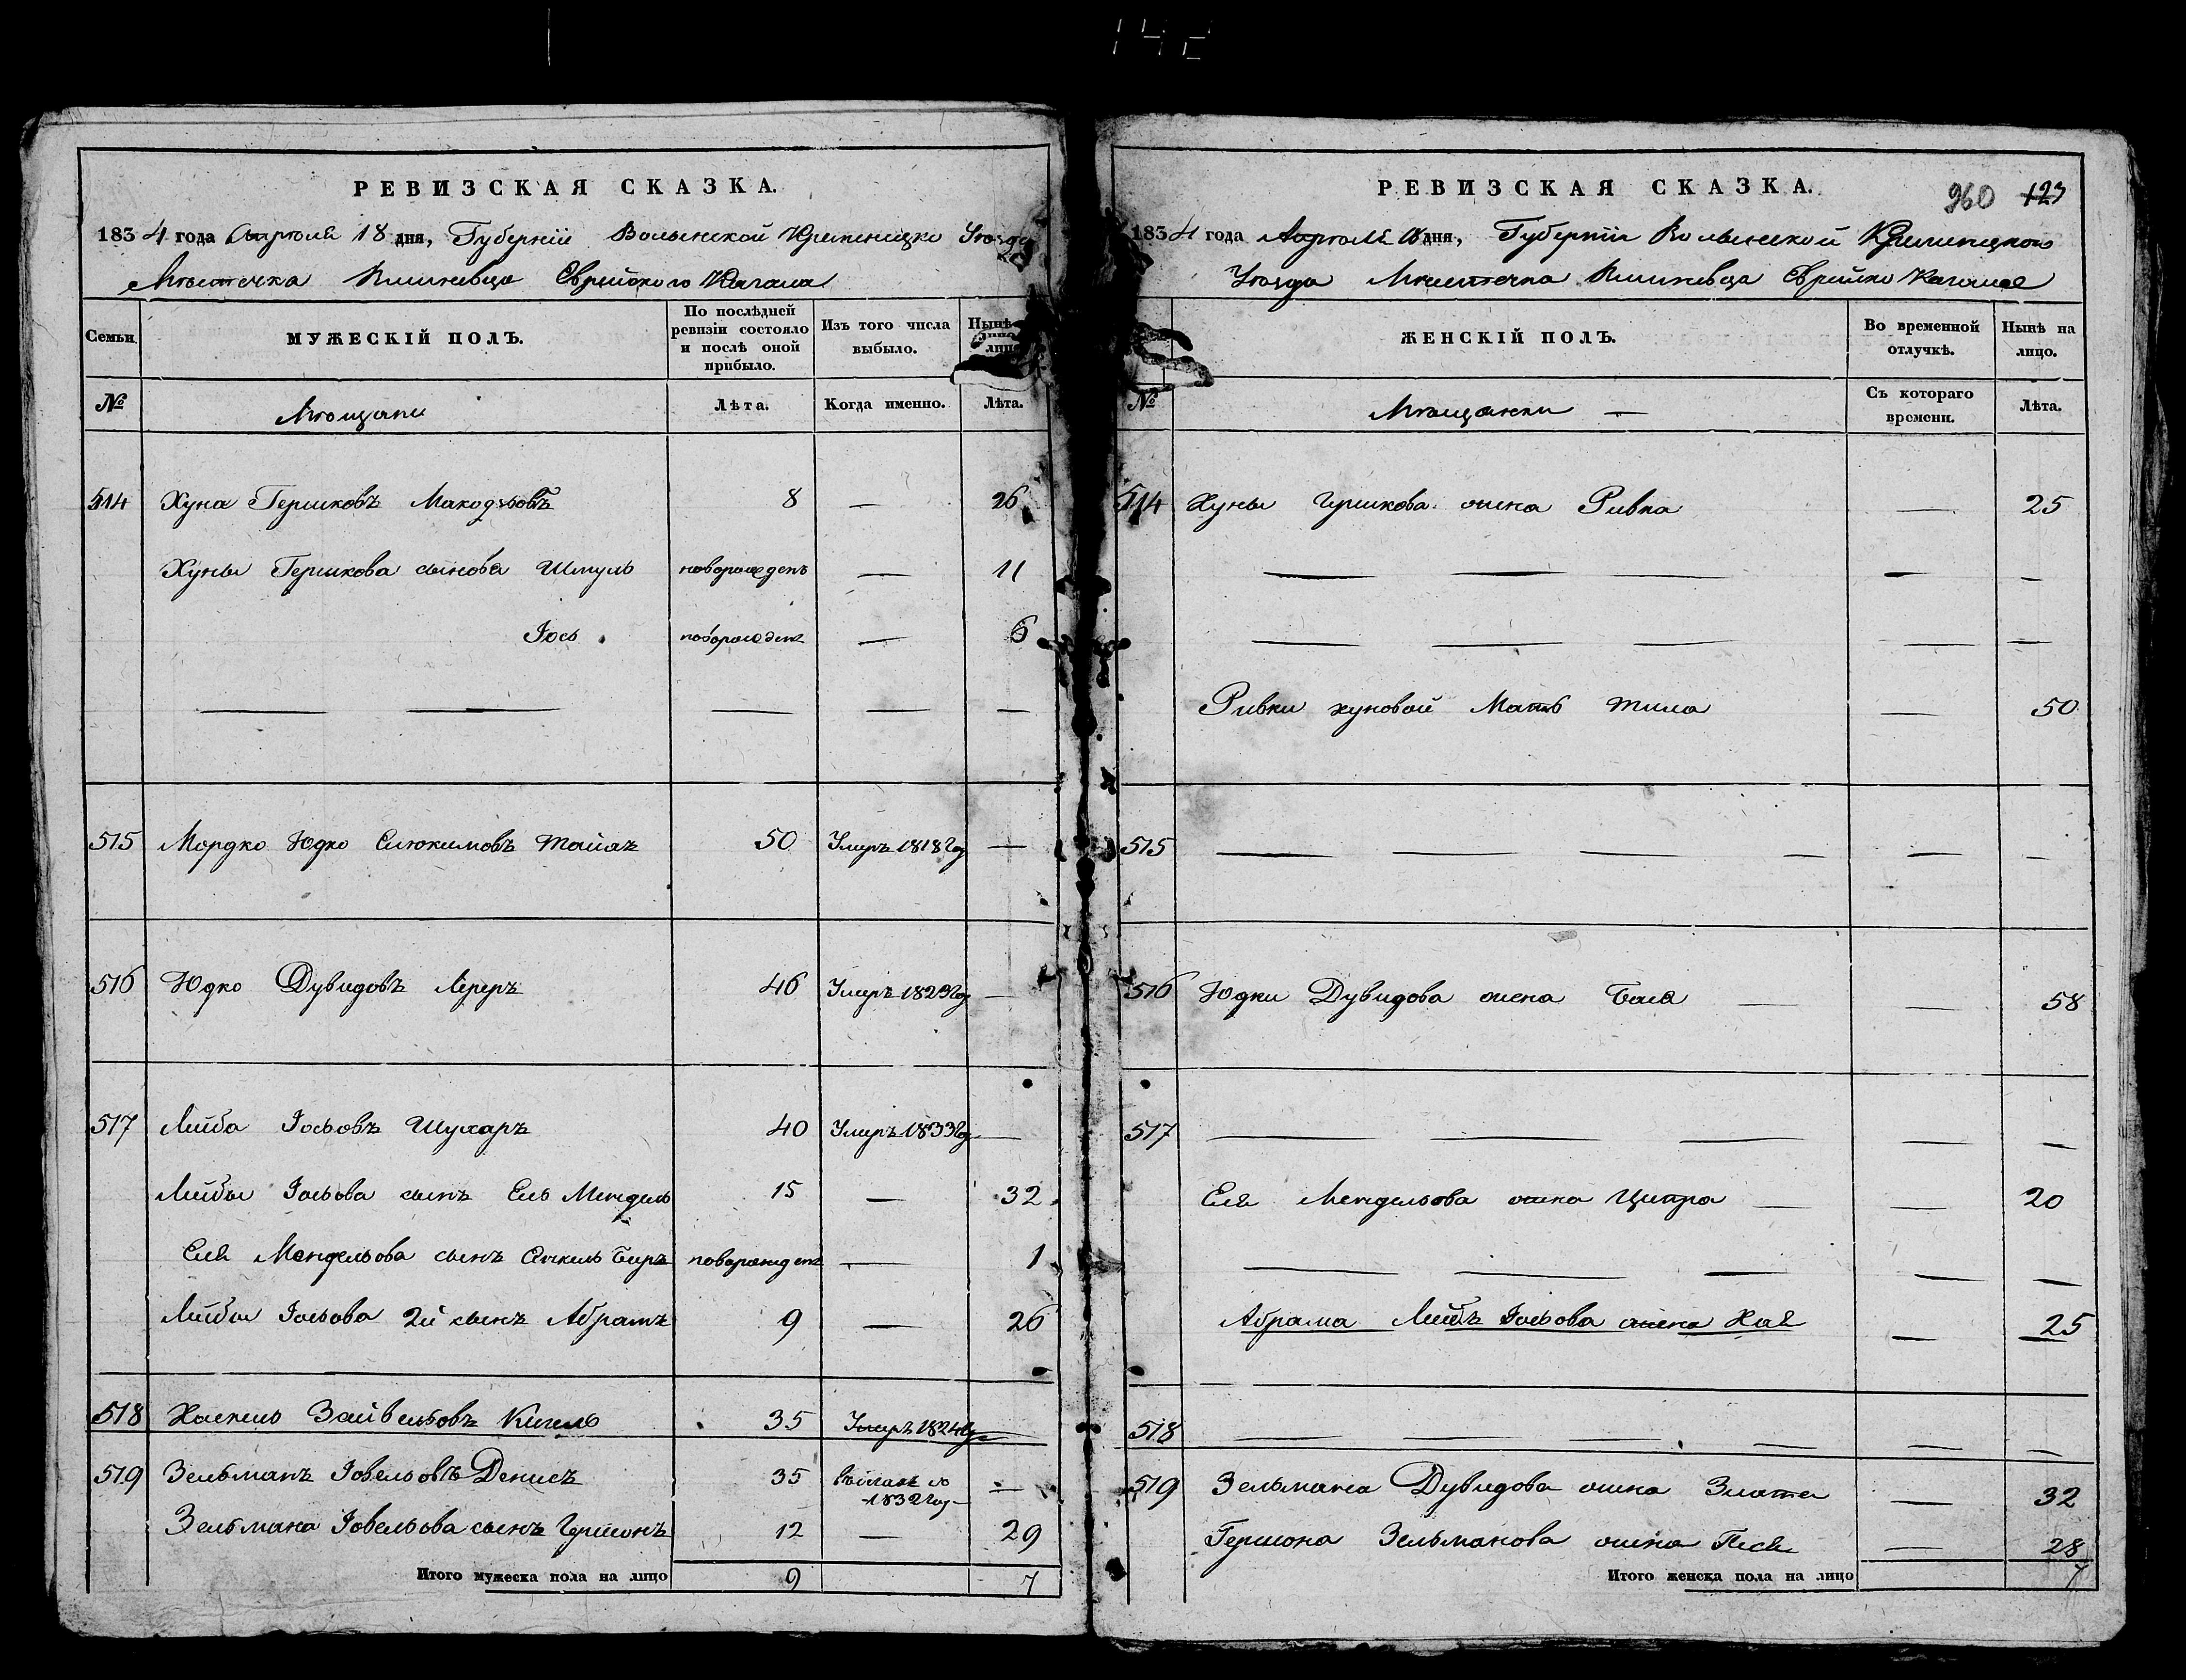 РЕВИЗСКАЯ СКАЗКА.
1834 года Апреля 18 дня, Губернiи Волынской Кременецко Уезда
Местечка Вишневца Еврейского Кагала
Семьи
МУЖЕСКІЙ ПОЛЪ.
По послѣдней ревизіи состояло и послѣ оной прибыло.
Изъ того числа выбыло.
Нынѣ
№ Мещане Лѣта. Когда именно. Лѣта.
514 Хуна Гершковъ 8 — 26
Хуны Гершкова сынове Шмуль новорожденъ — 11
Іось новорожденъ — 6
— — — — —
515 Мордко Юдко 50 Умеръ 1818 год —
516 Юдко Дувидовъ Лереръ 46 Умеръ 1823 год —
517 Лейба Іосьовъ Шухаръ 40 Умеръ 1833 год —
Лейбы Іосьова сынъ Ель Мендель 15 — 32
Еля Мендельова сынъ Беръ новорожденъ — 1
Лейбы Іосьова 2й сынъ Абрамъ 9 — 26
518 Хаскель Зайвельовъ Кигель 35 Умеръ 1824 год —
519 Зельманъ Іовельовъ Денисъ 35 1832 год —
Зельмана Іовельова сынъ Гершонъ 12 — 29
Итого мужеска пола на лицо 9 7
РЕВИЗСКАЯ СКАЗКА. 960 123
1834 года Апреля 18 дня, Губернiи Волынской Кременецкого
Уезда Местечка Вишневца Еврейско Кагала
ЖЕНСКІЙ ПОЛЪ.
Во временной отлучкѣ.
Нынѣ на лицо.
№ Мещанки — Съ котораго времени. Лѣта.
514 Хуны Гершкова жена Ривка — 25
— — — — —
— — — — —
Ривки хуновой Мать — 50
515 — — — — — —
516 Юдки Дувидова жена Бася — — 58
517 — — — — —
Еля Мендельова жена Ципра — — 20
— — — — —
Абрама Лейбъ Іосьова жена Хая — 25
518 — — — — — —
519 Зельмана Дувидова жена Злата — 32
Гершона Зельманова жена Песя — 28
Итого женска пола на лицо 7